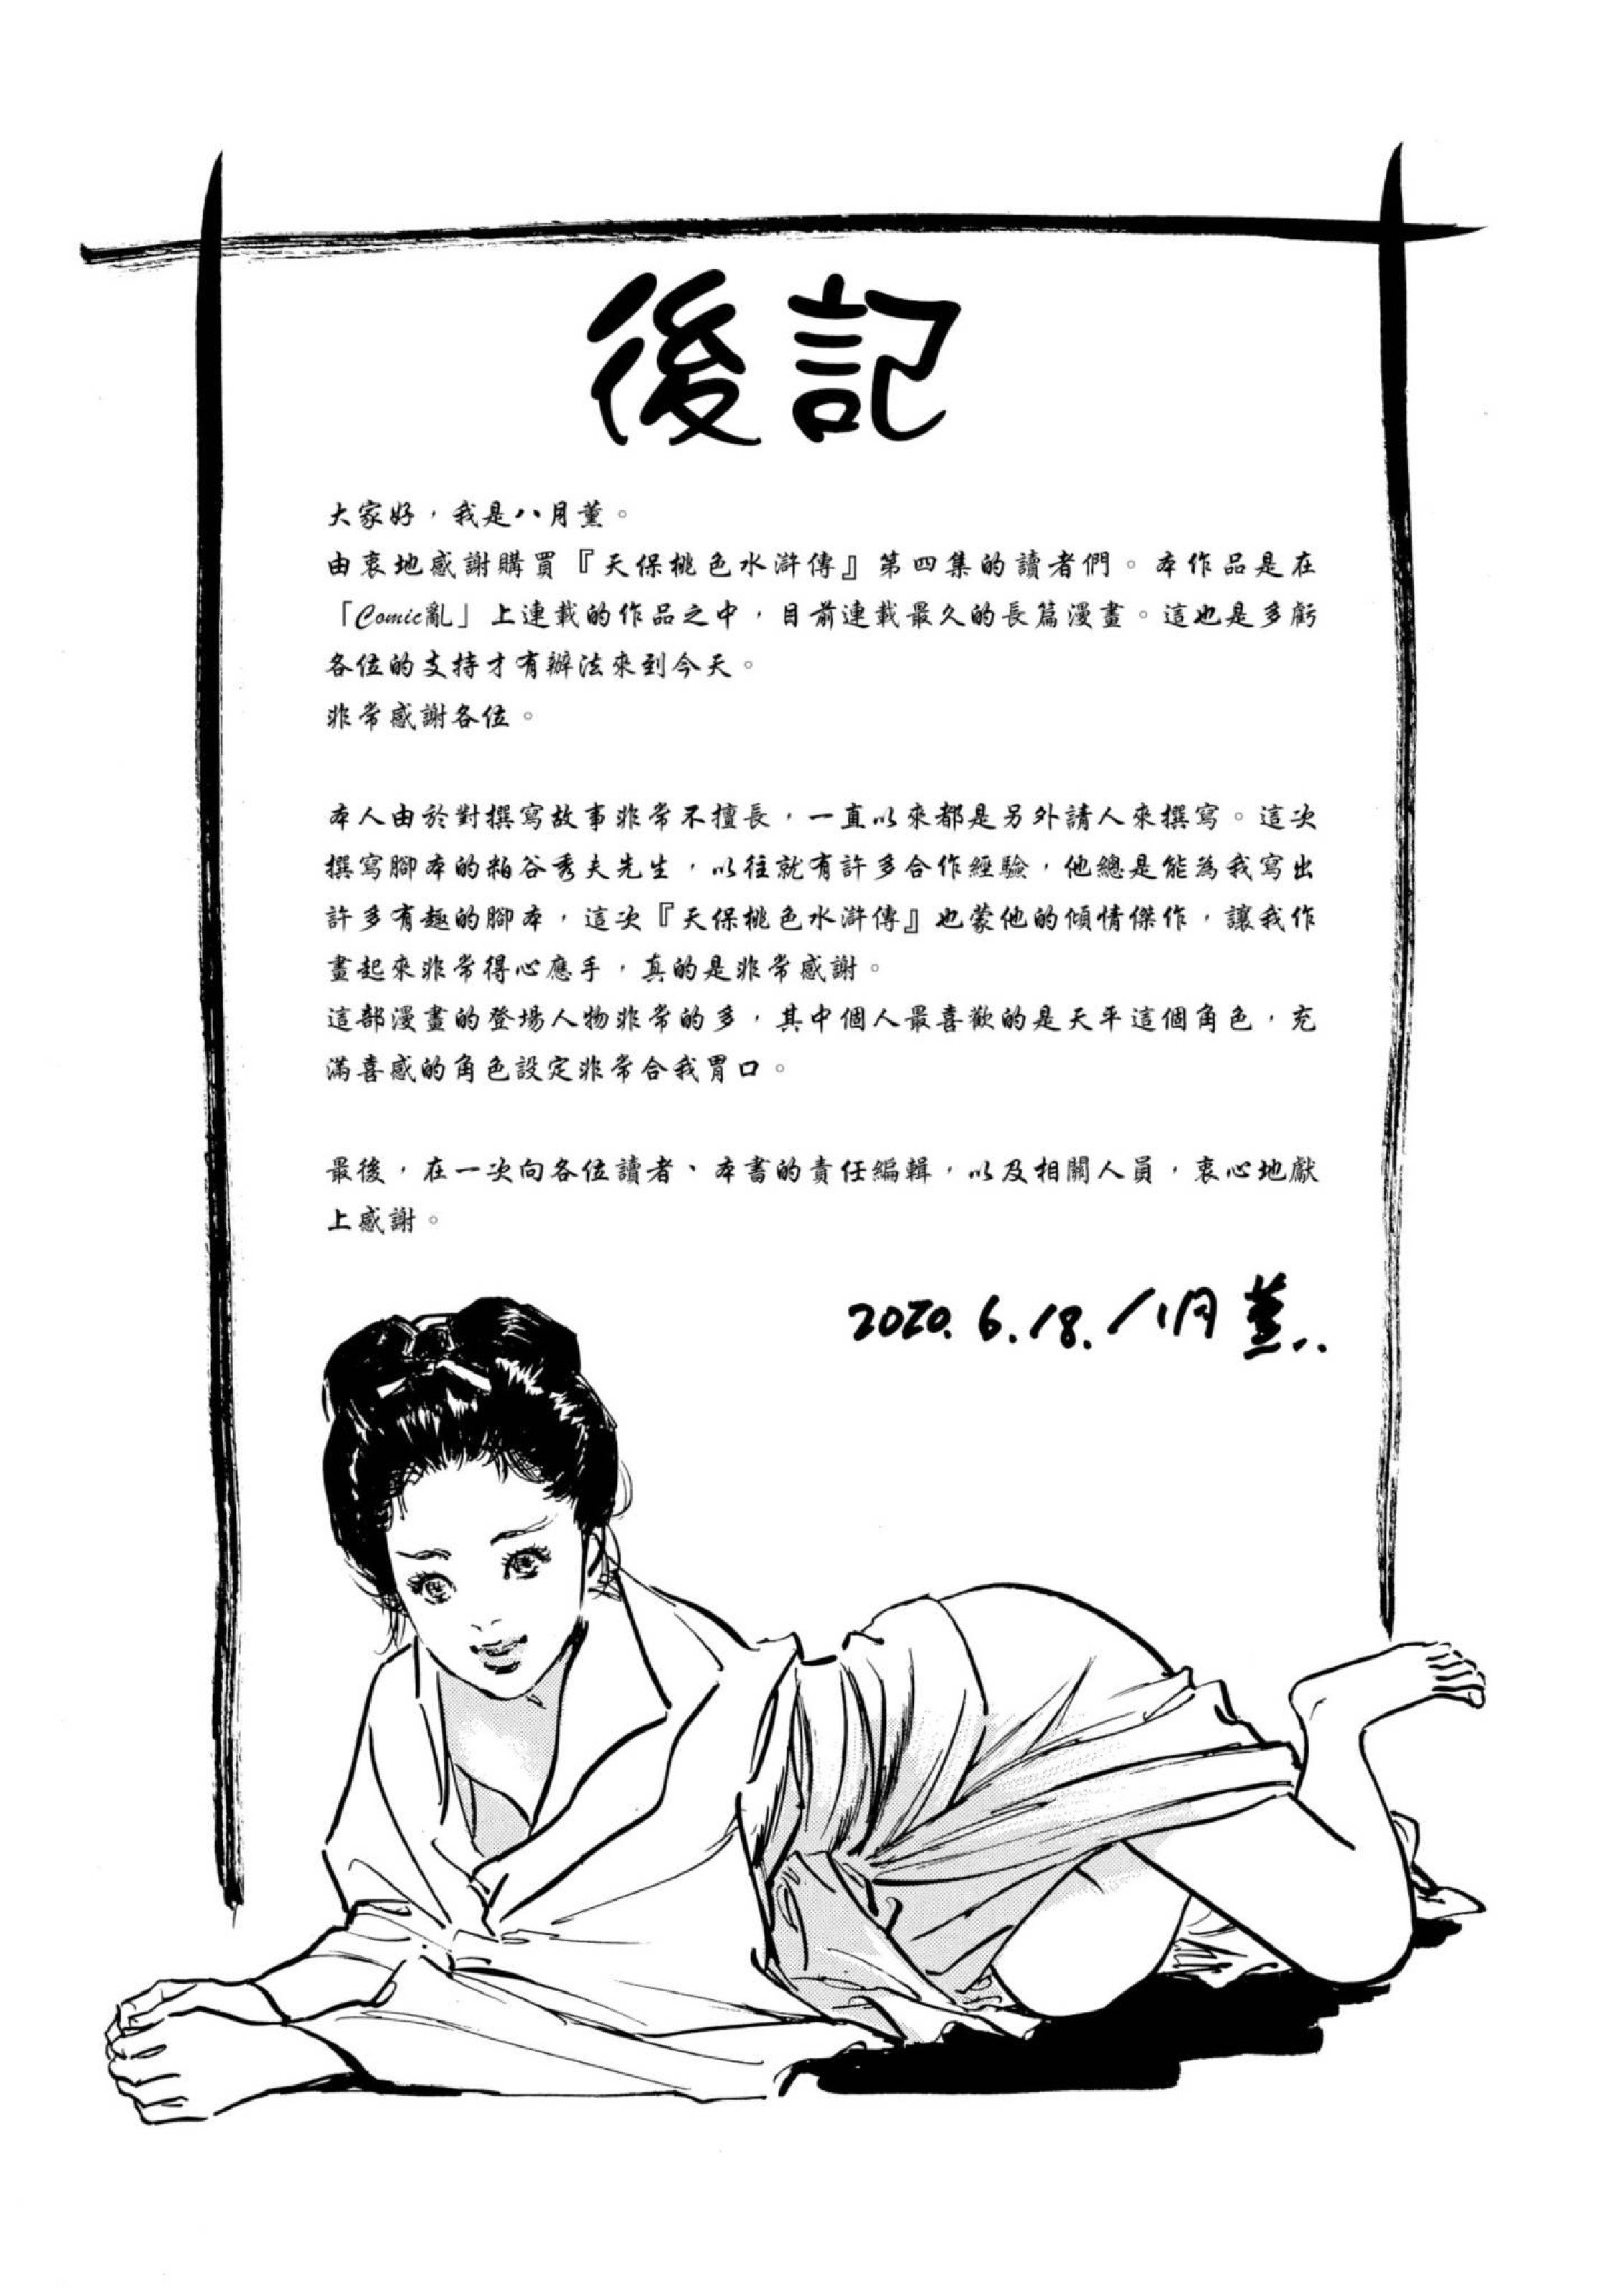 後記
大家好，我是八月薫。
由衷地感謝購買『天保桃色水滸傳』第四集的讀者們。本作品是在
「Comic亂」上連載的作品之中，目前連載最久的長篇漫畫。這也是多虧
各位的支持才有辦法來到今天。
非常感謝各位。
本人由於對撰寫故事非常不擅長，一直以來都是另外請人來撰寫。這次
撰寫腳本的粕谷秀夫先生，以往就有許多合作經驗，他總是能為我寫出
許多有趣的腳本，這次『天保桃色水滸傳』也蒙他的傾情傑作，讓我作
畫起來非常得心應手，真的是非常感謝。
這部漫畫的登場人物非常的多，其中個人最喜歡的是天平這個角色，充
滿喜感的角色設定非常合我胃口。
最後，在一次向各位讀者、本書的責任編輯，以及相關人員，衷心地獻
上感謝。
2020.6.18.八月薫..